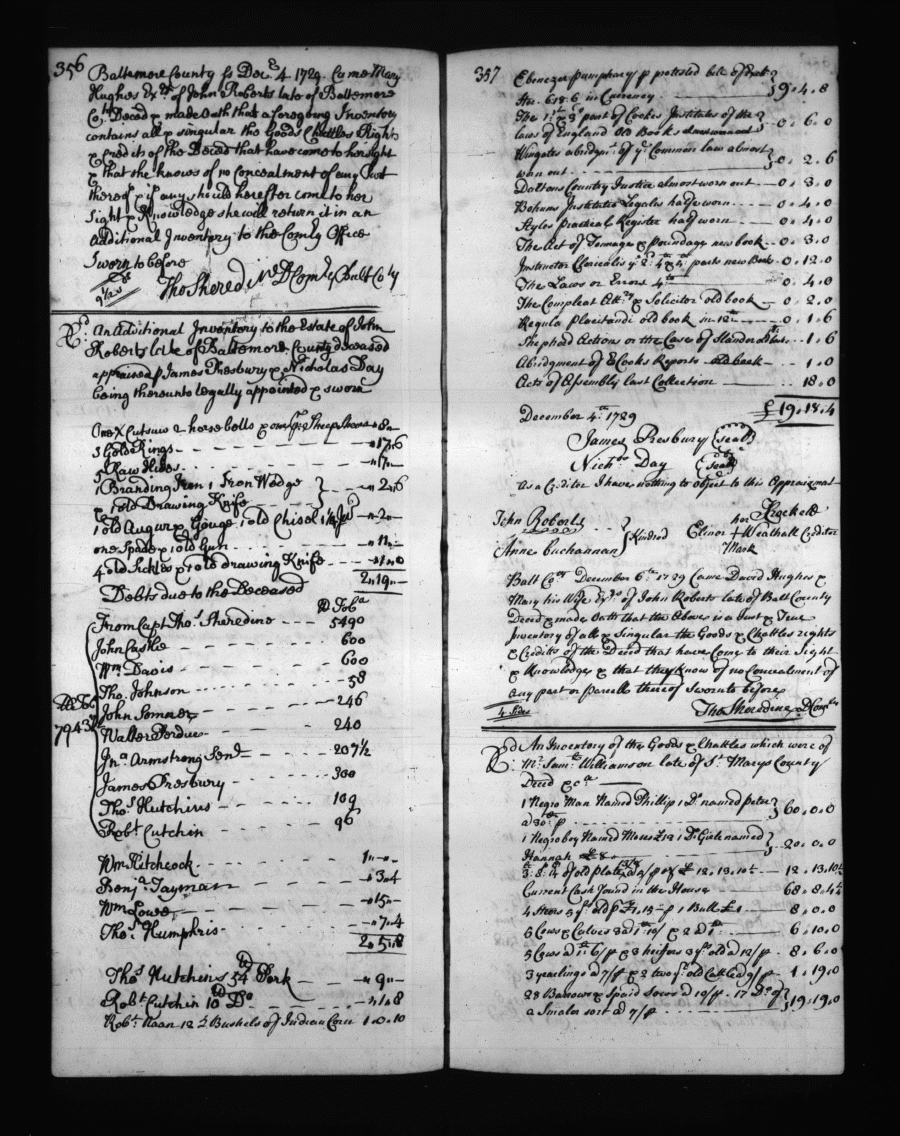 356
Baltemore County ss Decr 4 1729. Came Mary
Hughes Exx of John Roberts late of Baltemore
Coty Decd & made Oath that a foregoing Inventory
contains all & singular the Goods Chattles Rights
& Credits of the Decd that have come to her sight
& that she knows of no concealment of any part
thereof & if any should hereafter come to her
Sight & Knowledge she will return it in an
Additional Inventory to the Comry Office
Sworn to before
Tho Sheredine D Comry Balt Coty
An Additional Inventory to the Estate of John
Roberts late of Baltemore County deceased
appraised p James Presbury & Nicholas Day
being thereunto legally appointed & sworn
One X Cut saw 2 horse bells & one pr Sheep Shears " 8 "
3 Gold Rings " 17 " 6
5 Raw Hides " 17 "
1 Branding Iron 1 Iron Wedge } " 2 " 6
& 1 old Drawing Knife
1 old Augur & Gouge 1 old Chisel " 2 "
one Spade & 1 old Gun " 11 "
4 old Sickles & 1 old drawing Knife " 1 " 0
2 " 19 "
Debts due to the Deceased
lb Toba
From Capt Thos Sheredine 5490
John Castle 600
Wm Davis 600
Tho Johnson 58
John Somner 246
Walter Perdue 240
7943½
Jno Armstrong Senr 207½
James Presbury 300
Thos Hutchins 109
Robt Cutchin 96
Wm Hitchcock 1 " "
Benja Tayman " 3 " 4
Wm Lowe " 15 "
Thos Humphris " 7 " 4
2 " 5 " 8
Thos Hutchins 54 lb Pork " 9 "
Robt Cutchin 10 lb Do " 1 " 8
Robt Naan 12½ Bushels of Indian Corn 1 . 0 . 10
357
Ebenezer Pumphary p protested bill of Exch } 9 . 4 . 8
Ster. 6 18 . 6 in Currency
The 1st & 3d part of Cookes Institutes of the } 0 . 6 . 0
laws of England Old Books
Wingates abridgmt of ye Common law almost } 0 . 2 . 6
worn out
Daltons Country Justice almost worn out 0 . 3 . 0
Bohuns Institutio Legales half worn 0 . 4 . 0
Styles Practical Register half worn 0 . 4 . 0
The Act of Tonnage & Poundage new book 0 . 3 . 0
Instructor Clericalis ye 2d 4th & parts new Book 0 . 12 . 0
The Laws or Errors 4to 0 . 4 . 0
The Compleat Atty & Solicitor old book 0 . 2 . 0
Regula Placitandi old book in 12mo 0 . 1 . 6
Shepherd Actions or the Case of Slander 1 . 6
Abridgment of E Cooks Reports old book 1 . 0
Acts of Assembly last Collection 18 . 0
£ 19 . 18 . 4
December 4th 1729
James Presbury (seal)
Nichos Day (seal)
As a Creditor I have nothing to object to this Appraismt
John Roberts } Kindred
Anne Buchannan
her
Elinor + Weathall Creditor
Mark
Balt Coty December 6th 1729 Came David Hughes &
Mary his Wife Exx of John Roberts late of Balt County
Decd & made Oath that the Above is a Just & True
Inventory of all & Singular the Goods & Chattles rights
& Credits of the Decd that have Come to their Sight
& Knowledge & that they know of no Concealment of
any part or parcell thereof Sworn to before
4 Sides
Tho Sheredine D Comry
An Inventory of the Goods & Chattles which were of
Mr Saml Williamson late of St Marys County
Decd &ca
1 Negro Man Named Phillip 1 Do named Peter } 60 . 0 . 0
a 30 £ p
1 Negro boy Named Moses £12 1 Do Girle named } 20 . 0 . 0
Hannah £8
of old plate 12 . 13 . 10½
Current Cash found in the House 68 . 8 . 4½
4 Steers 5 yr old p £1.15 p 1 Bull £1 8 . 0 . 0
5 Cows & Calves 6 . 10 . 0
5 Cows & 3 heifers 3 yr old a 12/p 8 . 6 . 0
3 yearlings a 7/p & 2 two yr old Cattle a 9/p 1 . 19 . 0
28 Barrows & Spaid Sows a 10/p 17 Do of } 19 . 19 . 0
a Smaler sort a 7/p